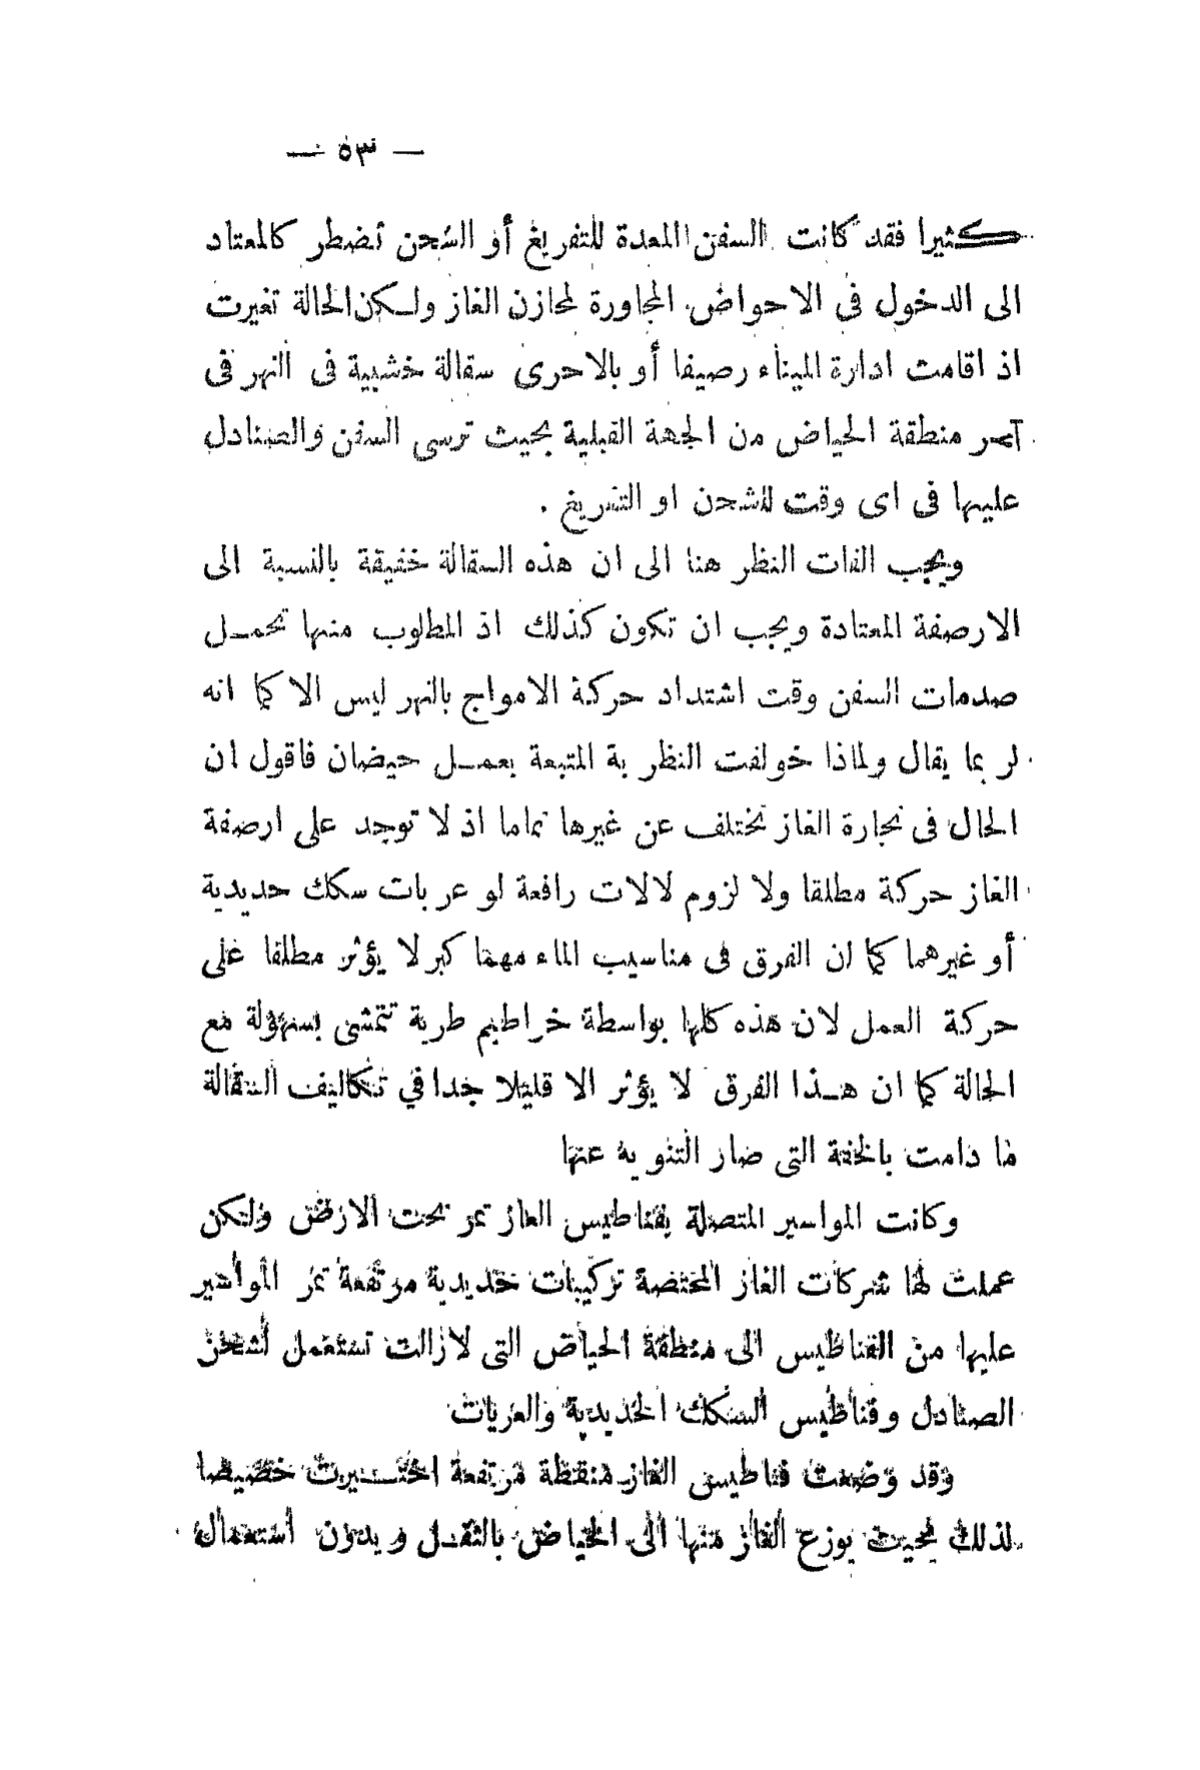 — ٥٣ —
كثيرا فقد كانت السفن المعدة للتفريغ أو الشحن تضطر كالمعتاد
الى الدخول فى الاحواض المجاورة لمخازن الغاز ولكن الحالة تغيرت
اذ اقامت ادارة الميناء رصيفا أو بالاحرى سقالة خشبية فى النهر فى
آخر منطقة الحياض من الجهة القبلية بحيث ترسى السفن والصنادل
عليها فى اى وقت للشحن او التفريغ .
ويجب الفات النظر هنا الى ان هذه السقالة خفيفة بالنسبة الى
الارصفة المعتادة ويجب ان تكون كذلك اذ المطلوب منها تحمل
صدمات السفن وقت اشتداد حركة الامواج بالنهر ليس الا كما انه
لربما يقال ولماذا خولفت النظرية المتبعة بعمل حيضان فاقول ان
الحال فى تجارة الغاز تختلف عن غيرها تماما اذ لا توجد على ارصفة
الغاز حركة مطلقا ولا لزوم لالات رافعة لو عربات سكك حديدية
أو غيرهما كما ان الفرق فى مناسيب الماء مهما كبر لا يؤثر مطلقا على
حركة العمل لان هذه كلها بواسطة خراطيم طرية تتمشى بسهولة مع
الحالة كما ان هذا الفرق لا يؤثر الا قليلا جدا في تكاليف السقالة
ما دامت بالخفة التى صار التنويه عنها
وكانت المواسير المتصلة بفناطيس الغاز تمر تحت الارض ولكن
عملت لها شركات الغاز المختصة تركيبات حديدية مرتفعة تمر المواسير
عليها من الفناطيس الى منطقة الحياض التى لازالت تستعمل لشحن
الصنادل وفناطيس السكك الحديدية والعربات
وقد وضعت فناطيس الغاز منقطة مرتفعة اختيرت خصيصا
لذلك بحيث يوزع الغاز منها الى الحياض بالثقل وبدون استعمال